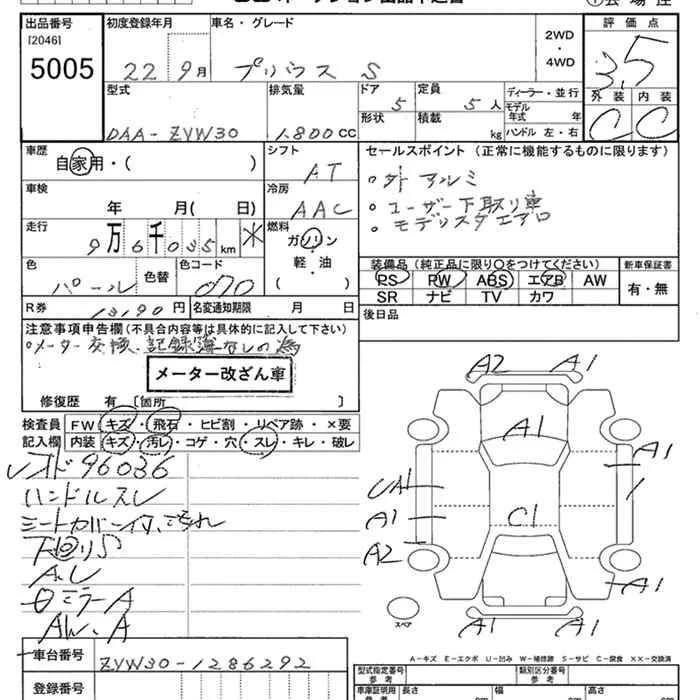 出品番号 初度登録年月 車名・グレード 2WD・4WD 評価点
[2046]
5005 22年9月 プリウス S 3.5
型式 排気量 ドア 定員 ディーラー・並行 外装 内装
DAA-ZVW30 1.800CC 5 5人 モデル年式 年 C C
形状 積載 kg ハンドル 左・右
車歴 シフト セールスポイント (正常に機能するものに限ります)
自家用・( ) AT 。外 アルミ
車検 冷房 。ユーザー下取り車
年 月( 日) AAC 。モデリスタエアロ
走行 燃料
9万6千035km ※ ガソリン
軽・油
( )
色 色替 色コード 装備品 (純正品に限り○をつけてください) 新車保証書
パール 070 PS PW ABS エアB AW 有・無
SR ナビ TV カワ
R券 13190円 名変通知期限 月 日 後日品
注意事項申告欄(不具合内容等は具体的に記入して下さい)
。メーター交換、記録簿なしの為
メーター改ざん車
修復歴 有 [箇所 ]
検査員 FW・キズ・飛石・ヒビ割・リペア跡・×要
記入欄 内装・キズ・汚レ・コゲ・穴・スレ・キレ・破レ
96036
ハンドルスレ
A2 A1
A1
A1
A1
C1
A2
A1
A1 A1
スペア
A-キズ E-エクボ U-凹み W-補修跡 S-サビ C-腐食 XX-交換済
車台番号 ZVW30-1286292
登録番号
型式指定番号 参考 類別区分番号 参考
車庫証明用 参考 長さ cm 幅 cm 高さ cm